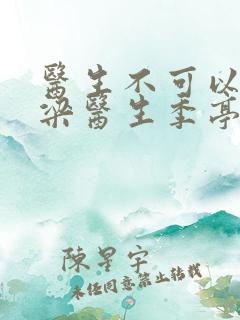 醫生不可以
梁醫生季亭
陳星宇
未經同意禁止轉載